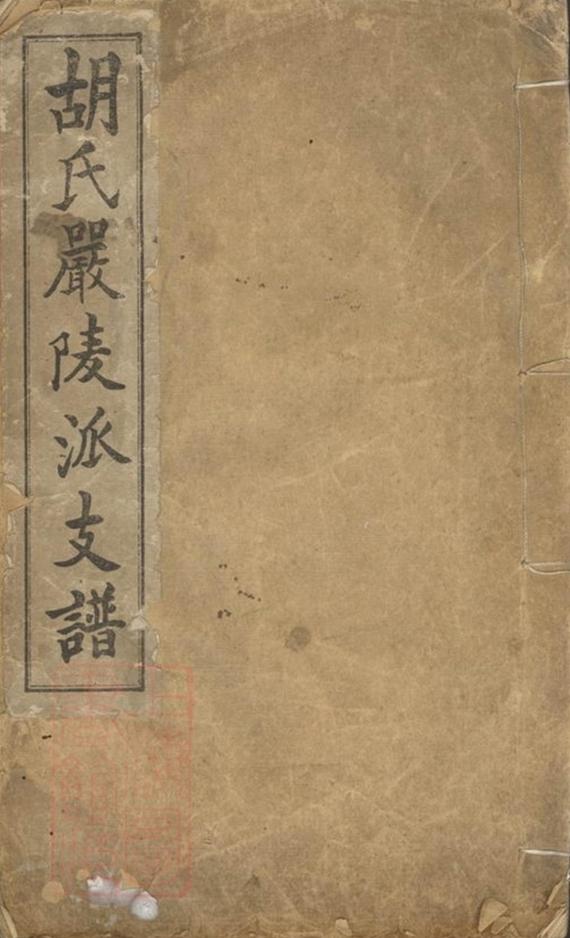 胡氏嚴陵派支譜